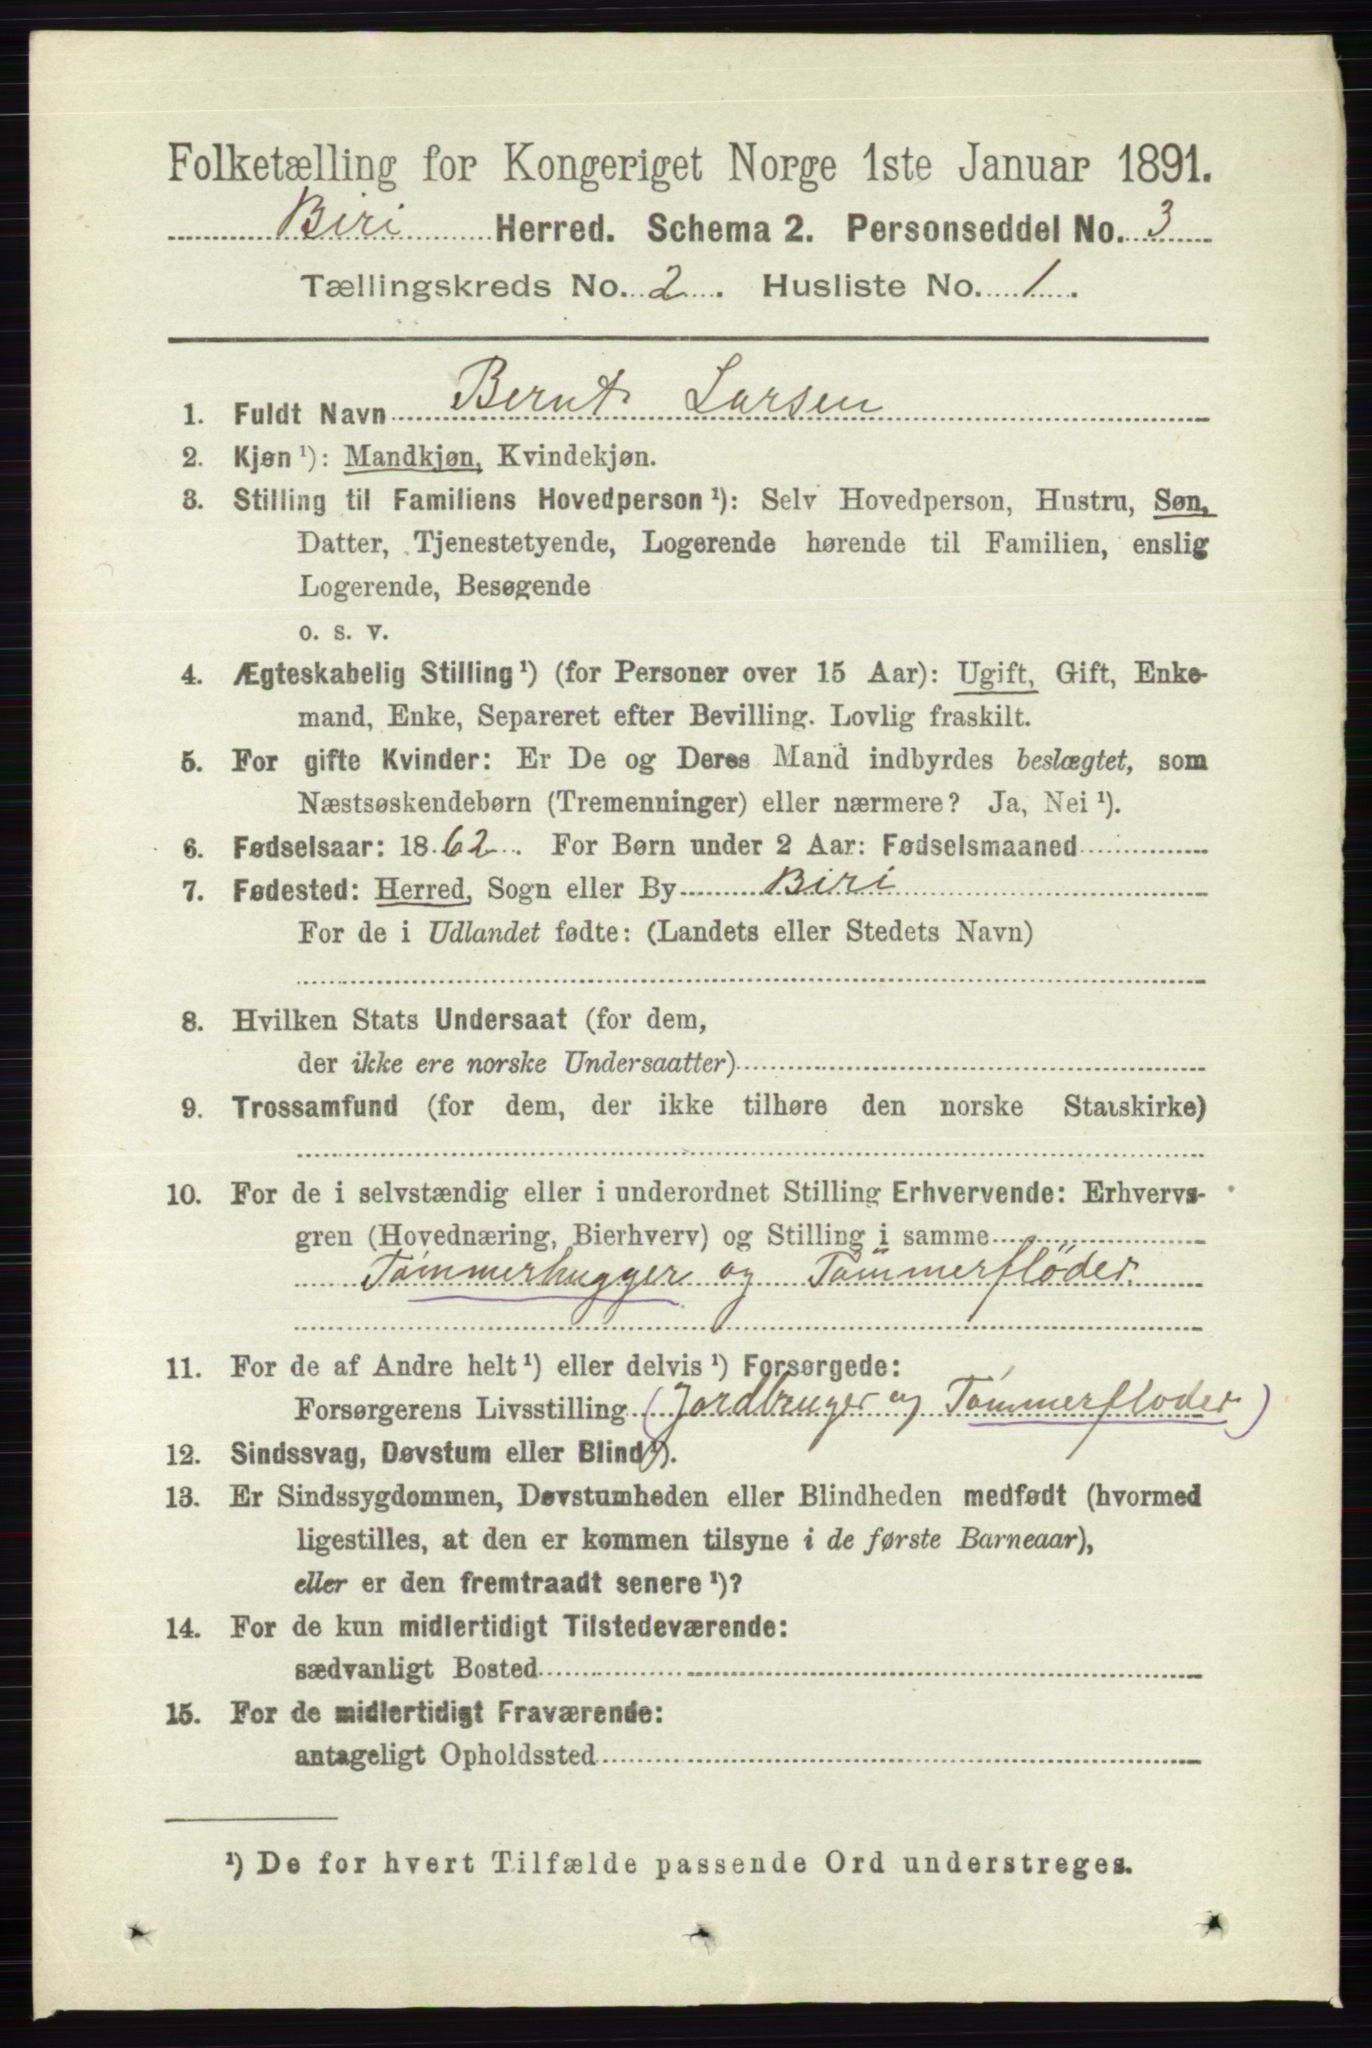 Folketælling for Kongeriget Norge 1ste Januar 1891.
Biri Herred. Schema 2. Personseddel No. 3
Tællingskreds No. 2. Husliste No. 1.
1. Fuldt Navn Bernt Larsen
2. Kjøn ¹): Mandkjøn, Kvindekjøn.
3. Stilling til Familiens Hovedperson ¹): Selv Hovedperson, Hustru, Søn,
Datter, Tjenestetyende, Logerende hørende til Familien, enslig
Logerende, Besøgende
o. s. v.
4. Ægteskabelig Stilling ¹) (for Personer over 15 Aar): Ugift, Gift, Enke-
mand, Enke, Separeret efter Bevilling. Lovlig fraskilt.
5. For gifte Kvinder: Er De og Deres Mand indbyrdes beslægtet, som
Næstsøskendebørn (Tremenninger) eller nærmere? Ja, Nei ¹).
6. Fødselsaar: 1862. For Børn under 2 Aar: Fødselsmaaned
7. Fødested: Herred, Sogn eller By Biri
For de i Udlandet fødte: (Landets eller Stedets Navn)
8. Hvilken Stats Undersaat (for dem,
der ikke ere norske Undersaatter)
9. Trossamfund (for dem, der ikke tilhøre den norske Statskirke)
10. For de i selvstændig eller i underordnet Stilling Erhvervende: Erhvervs-
gren (Hovednæring, Bierhverv) og Stilling i samme
Tømmerhugger og Tømmerfløder
11. For de af Andre helt ¹) eller delvis ¹) Forsørgede:
Forsørgerens Livsstilling (Jordbruger og Tømmerfloder)
12. Sindssvag, Døvstum eller Blind ¹).
13. Er Sindssygdommen, Døvstumheden eller Blindheden medfødt (hvormed
ligestilles, at den er kommen tilsyne i de første Barneaar),
eller er den fremtraadt senere ¹)?
14. For de kun midlertidigt Tilstedeværende:
sædvanligt Bosted
15. For de midlertidigt Fraværende:
antageligt Opholdssted
¹) De for hvert Tilfælde passende Ord understreges.